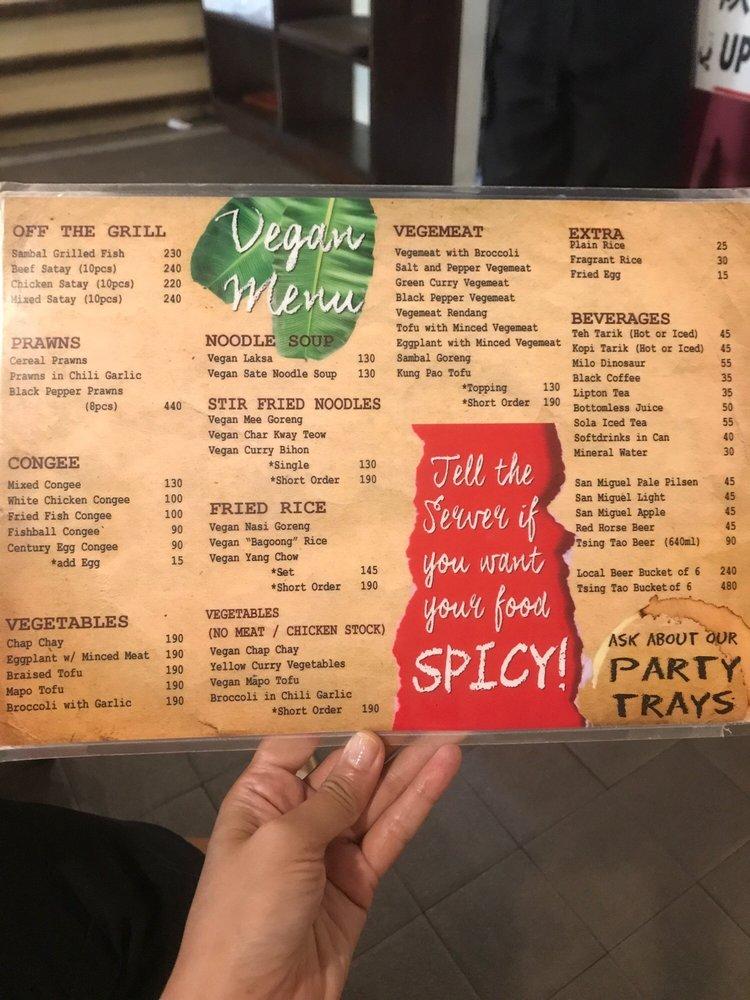 OFF THE GRILL
Sambal Grilled Fish 230
Beef Satay (10pcs) 240
Chicken Satay (10pcs) 220
Mixed Satay (10pcs) 240
PRAWNS
Cereal Prawns
Prawns in Chili Garlic
Black Pepper Prawns
(8pcs) 440
CONGEE
Mixed Congee 130
White Chicken Congee 100
Fried Fish Congee 100
Fishball Congee 90
Century Egg Congee 90
*add Egg 15
VEGETABLES
Chap Chay 190
Eggplant w/ Minced Meat 190
Braised Tofu 190
Mapo Tofu 190
Broccoli with Garlic 190
Vegan
Menu
NOODLE SOUP
Vegan Laksa 130
Vegan Sate Noodle Soup 130
STIR FRIED NOODLES
Vegan Mee Goreng
Vegan Char Kway Teow
Vegan Curry Bihon
*Single 130
*Short Order 190
FRIED RICE
Vegan Nasi Goreng
Vegan "Bagoong" Rice
Vegan Yang Chow
*Set 145
*Short Order 190
VEGETABLES
(NO MEAT / CHICKEN STOCK)
Vegan Chap Chay
Yellow Curry Vegetables
Vegan Mapo Tofu
Broccoli in Chili Garlic
*Short Order 190
VEGEMEAT
Vegemeat with Broccoli
Salt and Pepper Vegemeat
Green Curry Vegemeat
Black Pepper Vegemeat
Vegemeat Rendang
Tofu with Minced Vegemeat
Eggplant with Minced Vegemeat
Sambal Goreng
Kung Pao Tofu
*Topping 130
*Short Order 190
Tell the
Server if
you want
your food
SPICY!
EXTRA
Plain Rice 25
Fragrant Rice 30
Fried Egg 15
BEVERAGES
Teh Tarik (Hot or Iced) 45
Kopi Tarik (Hot or Iced) 45
Milo Dinosaur 55
Black Coffee 35
Lipton Tea 35
Bottomless Juice 50
Sola Iced Tea 55
Softdrinks in Can 40
Mineral Water 30
San Miguel Pale Pilsen 45
San Miguel Light 45
San Miguel Apple 45
Red Horse Beer 45
Tsing Tao Beer (640ml) 90
Local Beer Bucket of 6 240
Tsing Tao Bucket of 6 480
ASK ABOUT OUR
PARTY
TRAYS
UP